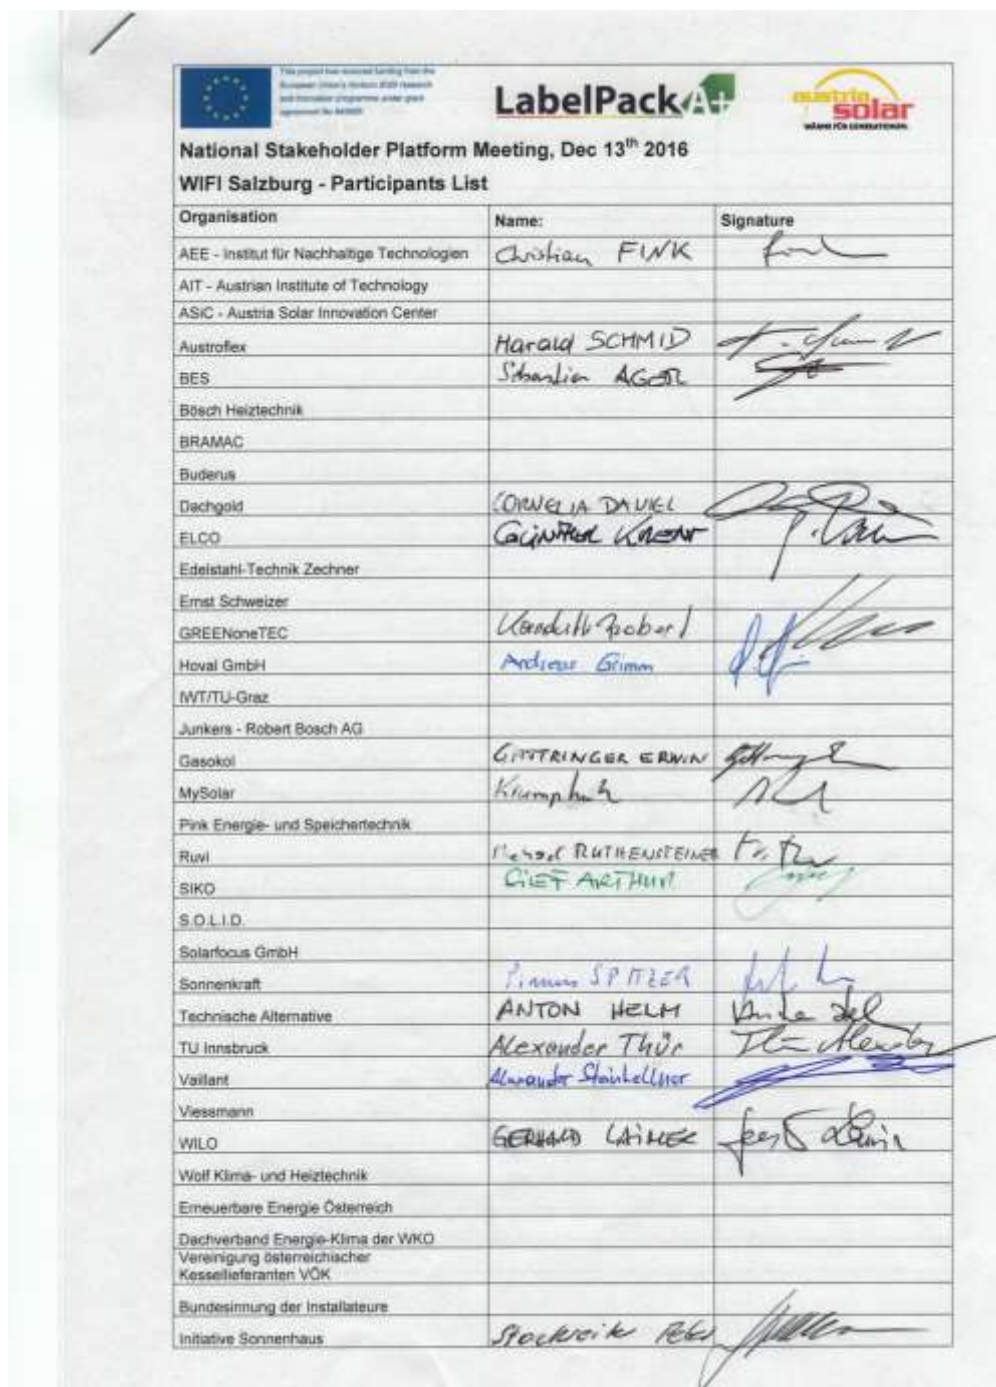 This project has received funding from the
European Union's Horizon 2020 research
and innovation programme under grant
agreement No
LabelPack A+
austria solar
WÄRME FÜR GENERATIONEN.
National Stakeholder Platform Meeting, Dec 13th 2016
WIFI Salzburg - Participants List
Organisation Name: Signature
AEE - Institut für Nachhaltige Technologien Christian FINK
AIT - Austrian Institute of Technology
ASiC - Austria Solar Innovation Center
Austroflex Harald SCHMID
BES Sebastian AGER
Bösch Heiztechnik
BRAMAC
Buderus
Dachgold CORNELIA DANIEL
ELCO GÜNTHER
Edelstahl-Technik Zechner
Ernst Schweizer
GREENoneTEC Kanduth Robert
Hoval GmbH Andreas Grimm
IWT/TU-Graz
Junkers - Robert Bosch AG
Gasokol GATTRINGER ERWIN
MySolar
Pink Energie- und Speichertechnik
Ruvi Michael RUTHENSTEINER
SIKO ARTHUR
S.O.L.I.D.
Solarfocus GmbH
Sonnenkraft Primus SPITZER
Technische Alternative ANTON HELM
TU Innsbruck Alexander Thür
Vaillant Alexander
Viessmann
WILO GERHARD LAIMER
Wolf Klima- und Heiztechnik
Erneuerbare Energie Österreich
Dachverband Energie-Klima der WKO
Vereinigung österreichischer
Kessellieferanten VÖK
Bundesinnung der Installateure
Initiative Sonnenhaus Stockreiter Peter